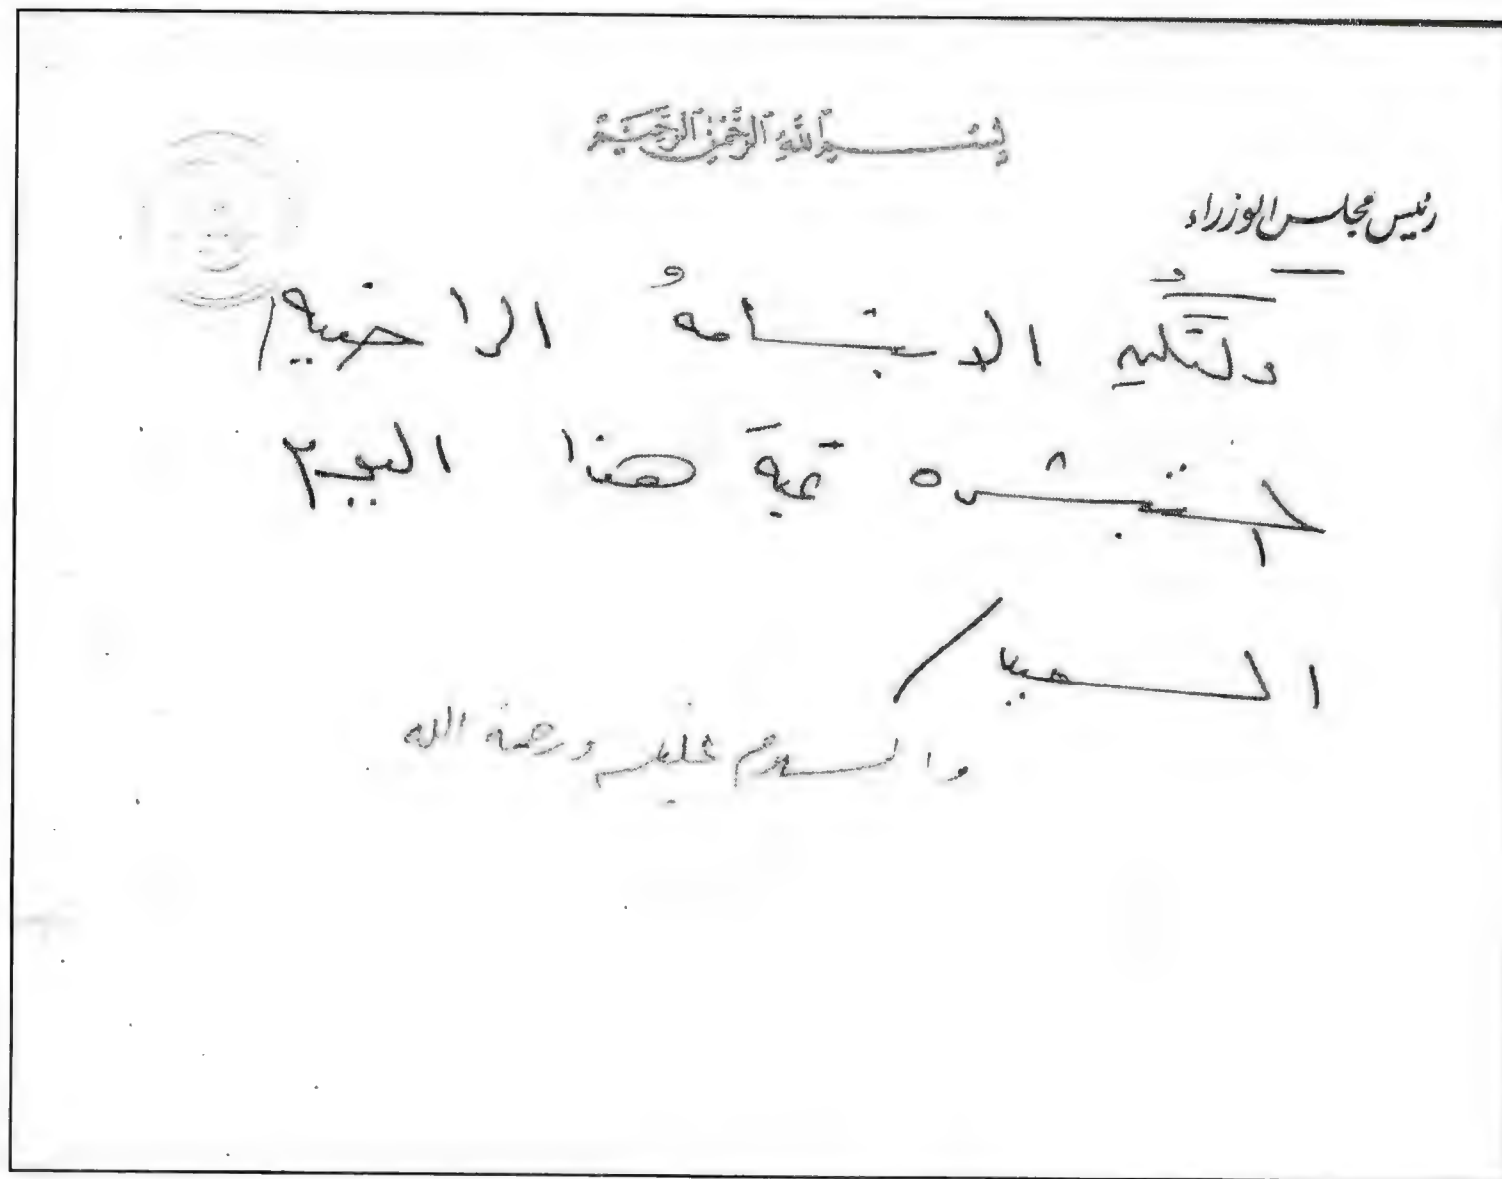 بسم الله الرحمن الرحيم
رئيس مجلس الوزراء
ولتكن الابتسامةُ الراضية
المستبشره تحيةَ هذا اليوم
السعيد/
والسلام عليكم ورحمة الله